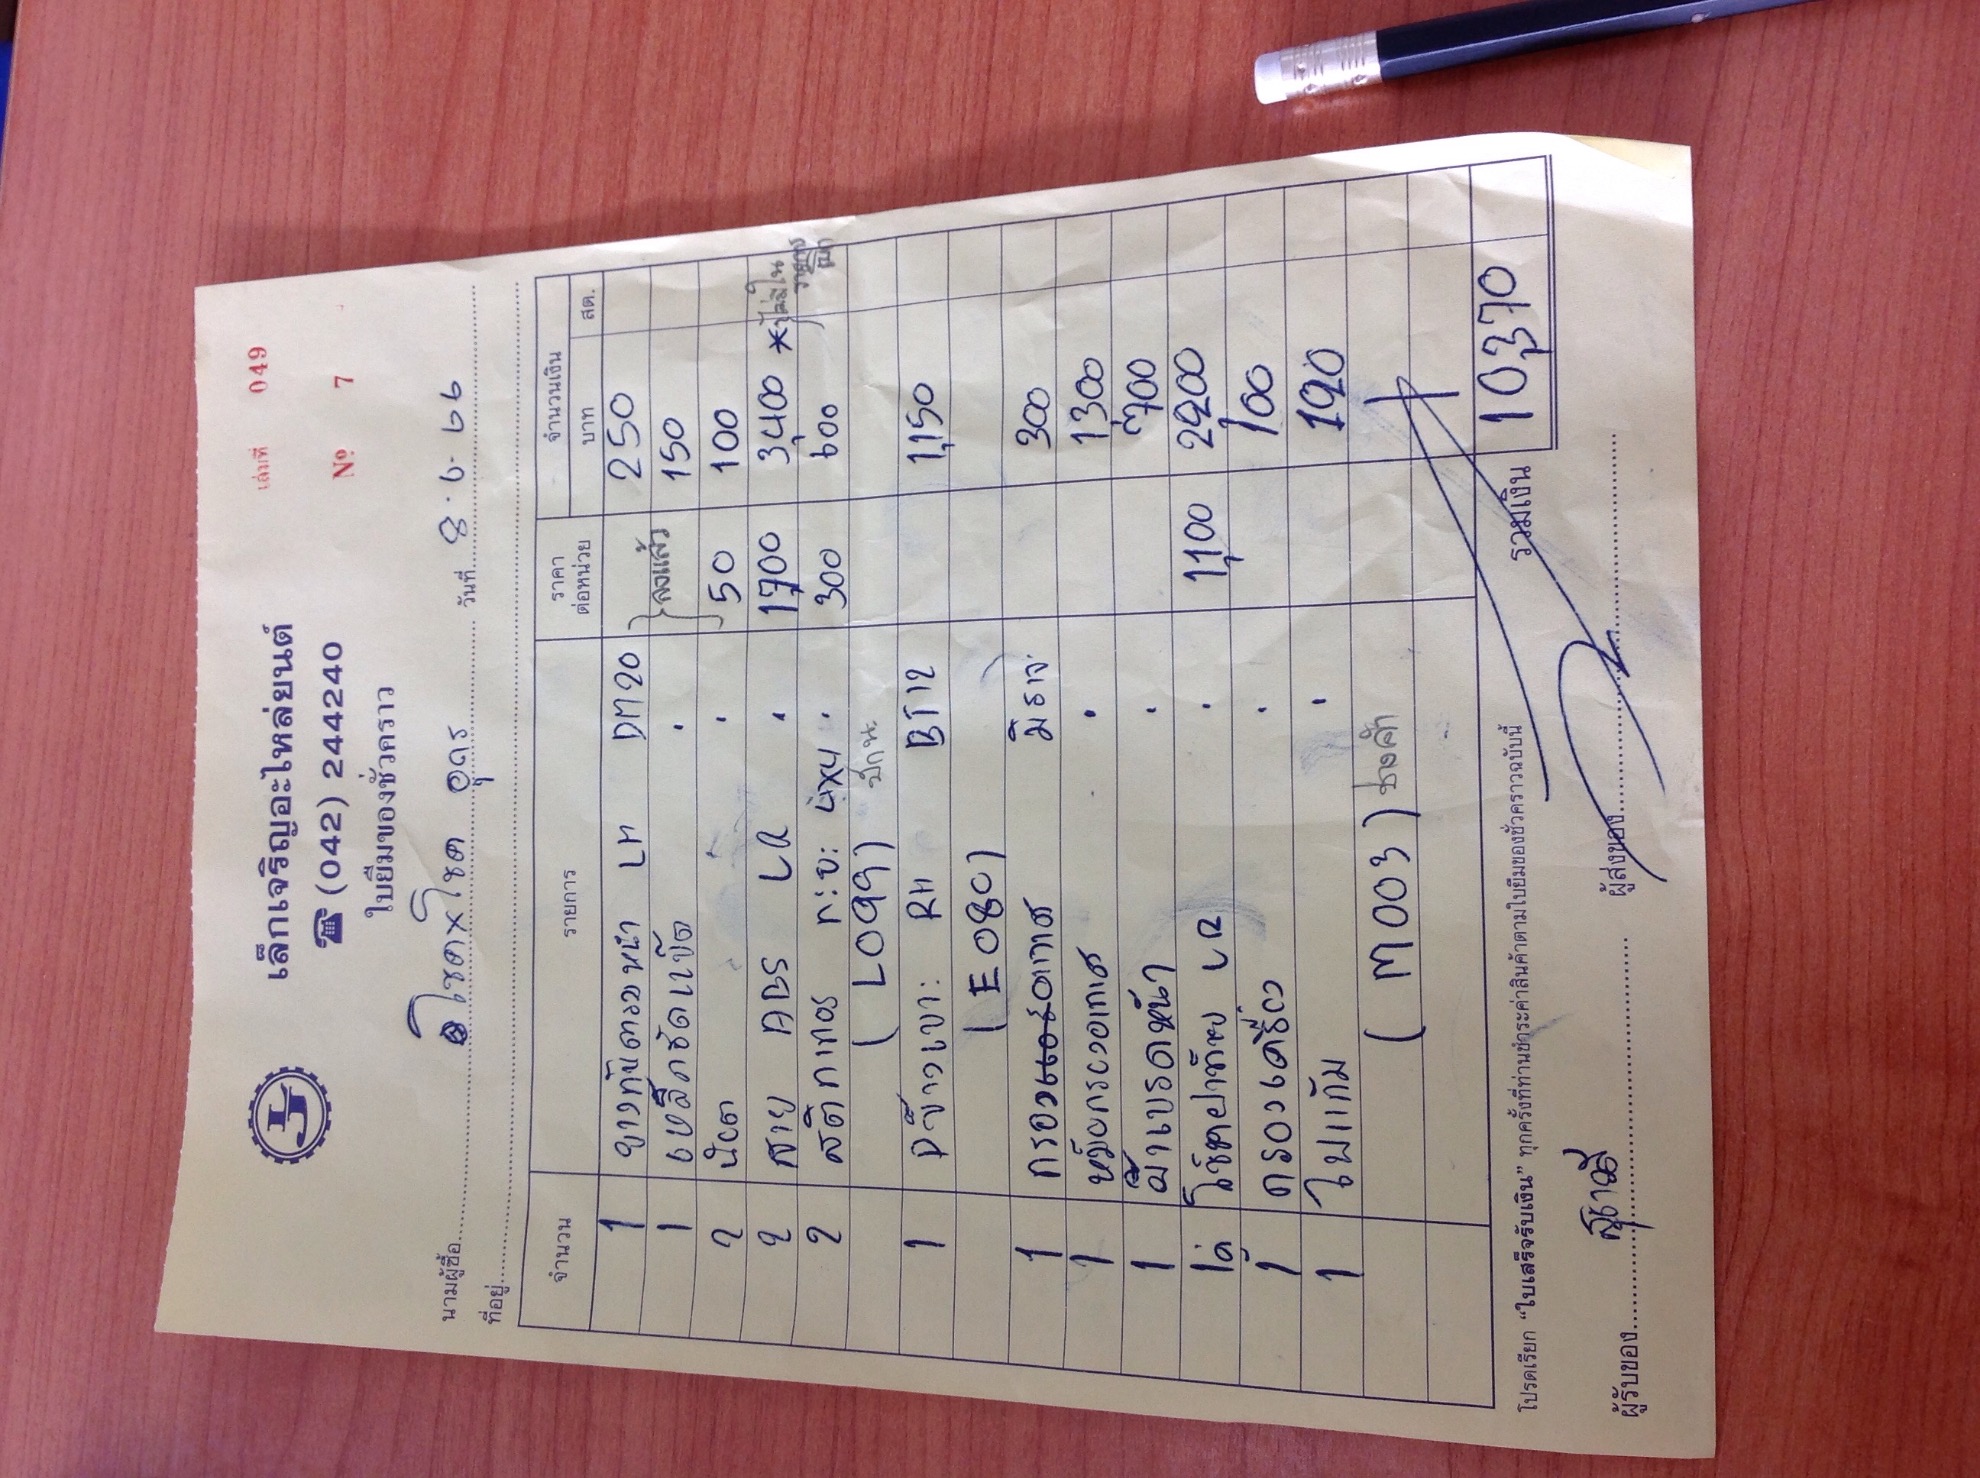 เล่มที่ 049
№ 7
เล็กเจริญอะไหล่ยนต์
☎ (042) 244240
ใบยืมของชั่วคราว
นามผู้ซื้อ โชคxโชค อุดร วันที่ 8.6.66
ที่อยู่
จำนวน รายการ ราคาต่อหน่วย จำนวนเงิน
บาท สต.
1 ยางกันโคลงหน้า LH DM20 250
1 เหล็กรัดแป๊ป . } ลงแล้ว 150
2 น๊อต . 50 100
2 สาย ABS LR . 1700 3,400 * ไม่มีใน
2 สติกเกอร์ ก:บ: 4x4 . 300 600
(L099)
1 RH BT12 1,150
(E080)
1 กรองโซล่า มิราจ 300
1 . 1300
1 ผ้าเบรคหน้า . 700
1คู่ โช้คฝาท้าย LR . 1,100 2200
1 กรองเครื่อง . 100
1 ใบแก้ม . 120
(M003) ช่างคำ
รวมเงิน 10,370
โปรดเรียก “ใบเสร็จรับเงิน” ทุกครั้งที่ท่านชำระค่าสินค้าตามใบยืมของชั่วคราวฉบับนี้
ผู้รับของ ผู้ส่งของ